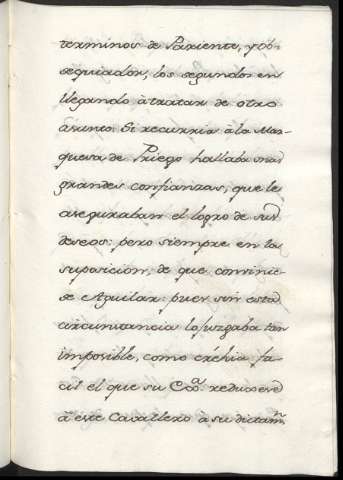 terminos de Pariente, y ob-
sequiador, los segundos en
llegando à tratar de otro
asunto. Si recurria à la Mar-
quesa de Priego hallaba mas
grandes confianzas, que le
aseguraban el logro de sus
deseos: pero siempre en la
suposicion, de que convinie-
se Aguilar: pues sin esta
circunstancia lo juzgaba tan
imposible, como crehia fa-
cil el que su Exª. reduxese
à este Cavallero à su dictamⁿ.